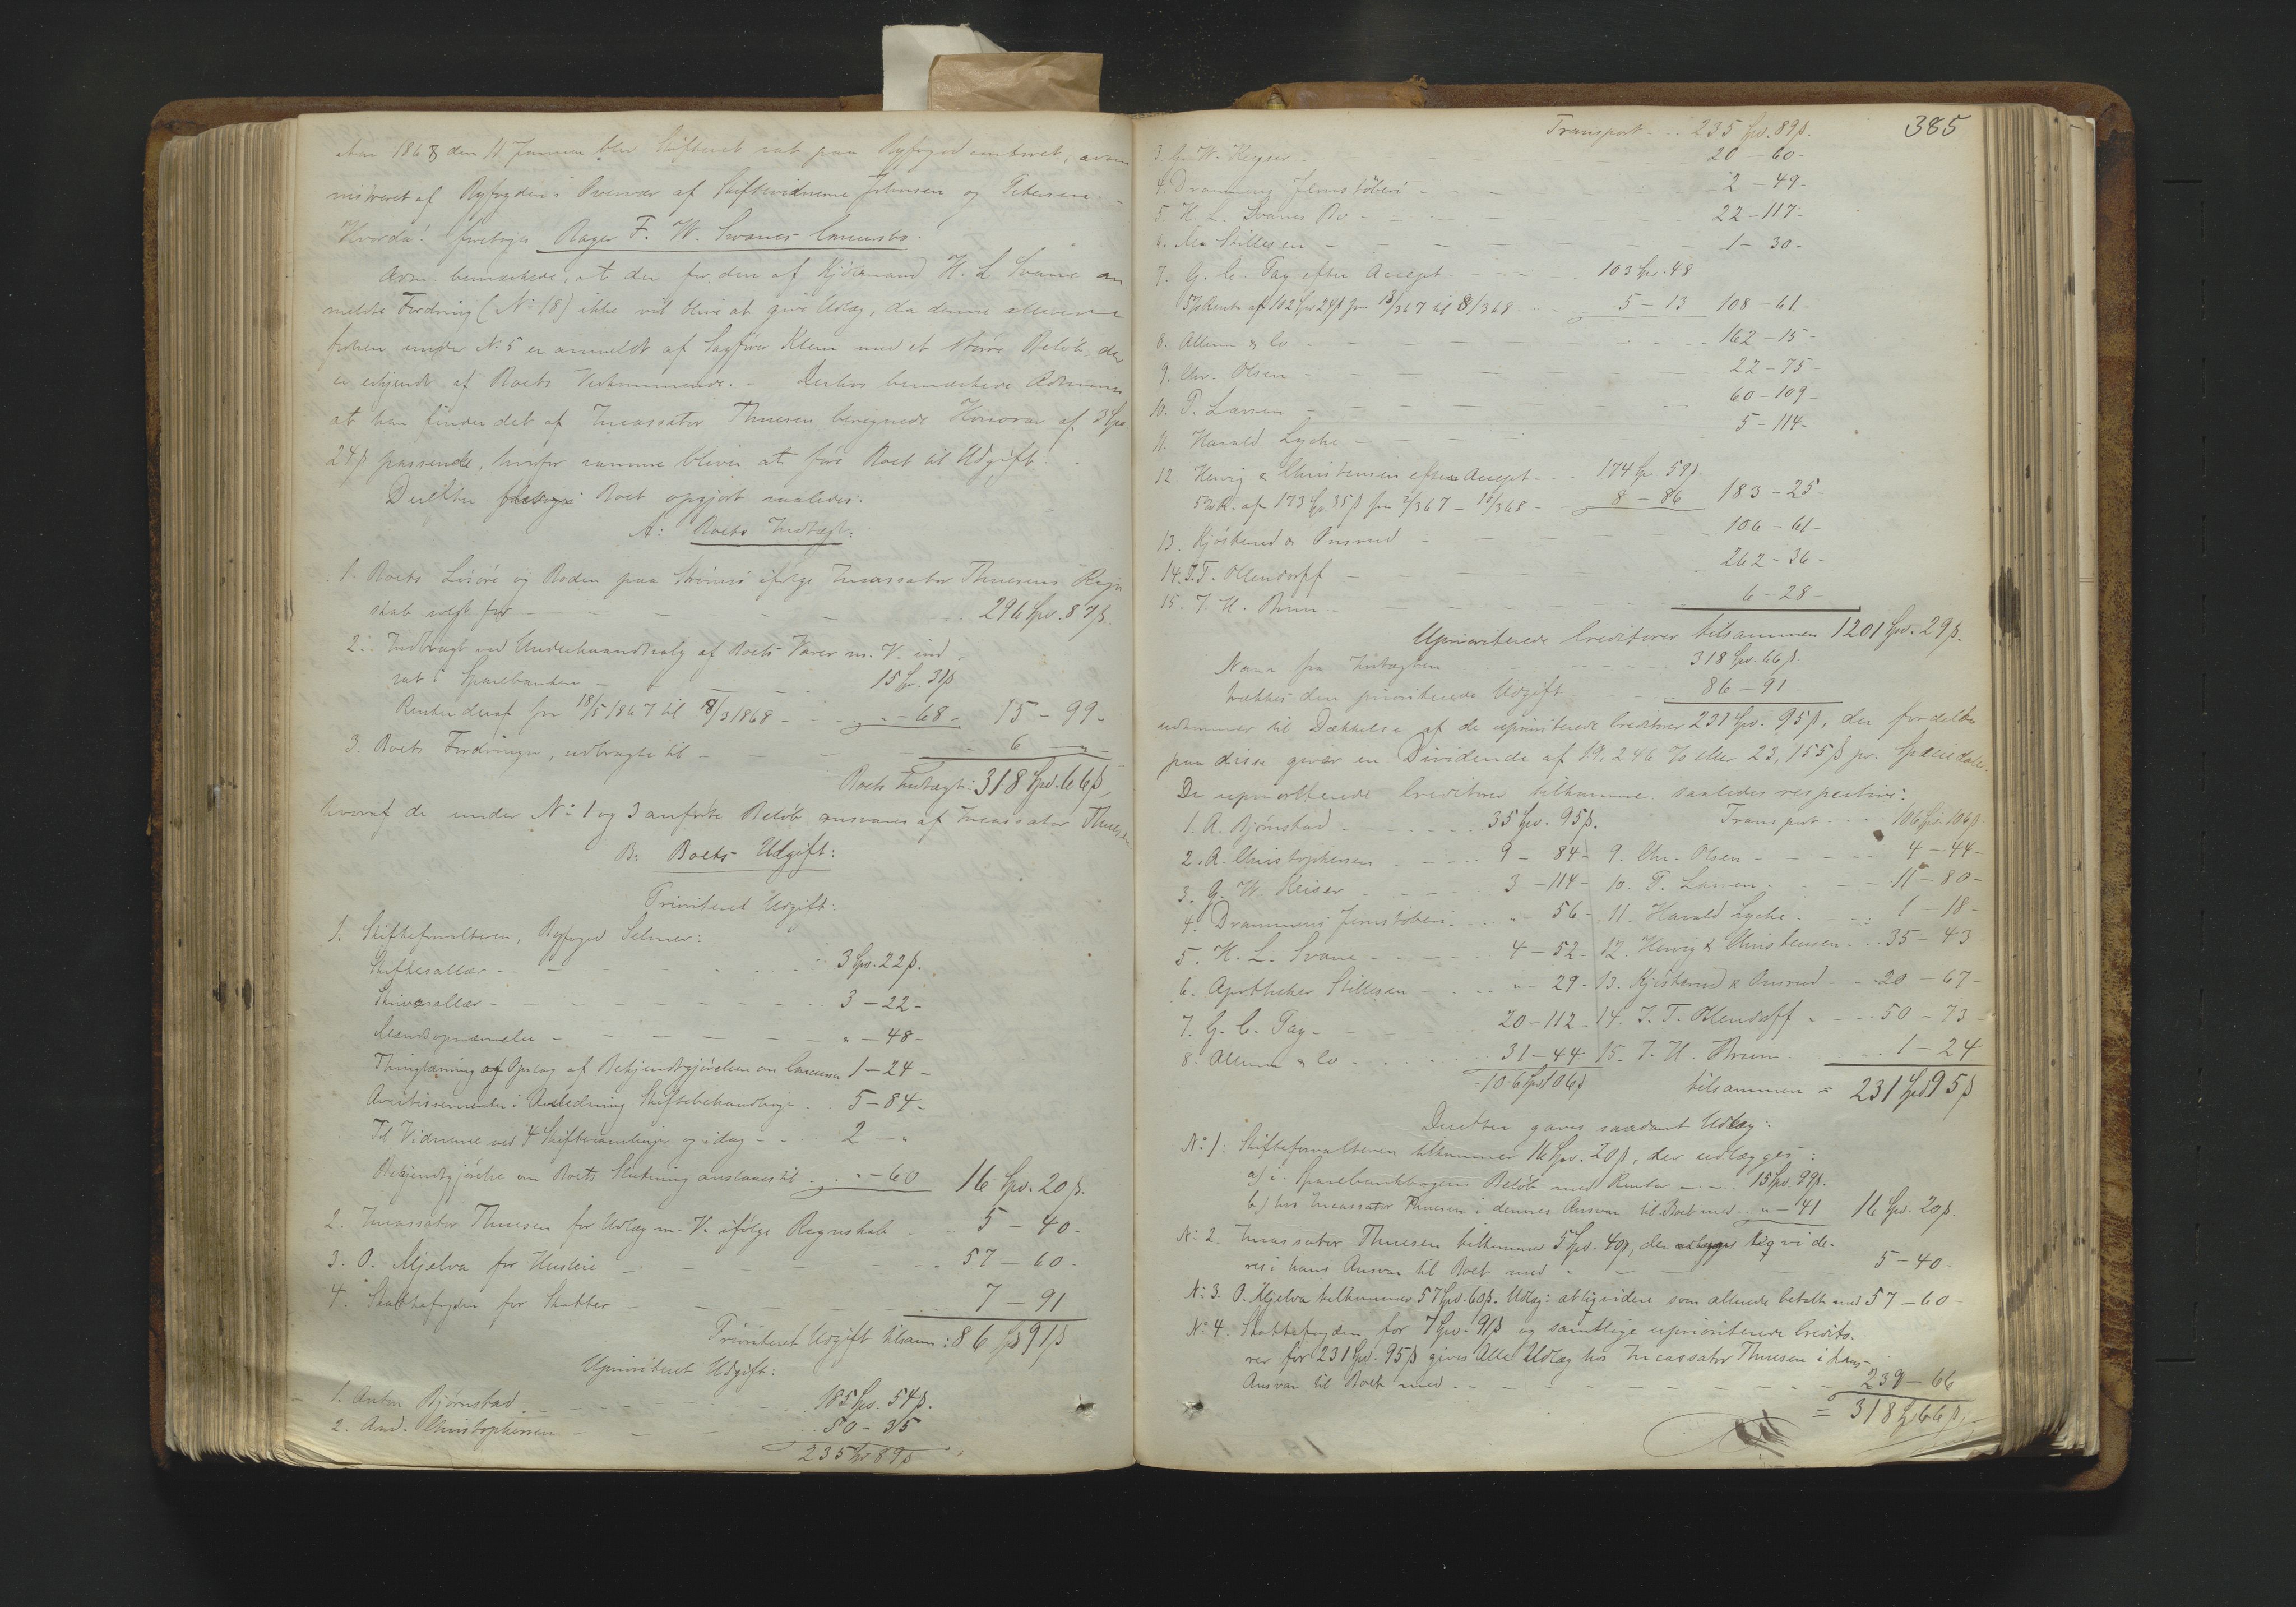 Aar 1868 den 11 Januar blev Skifteret sat paa Byfogedcontoret, admi
nistreret af Byfogden i Overvær af Skiftevidnerne Johnsen og Petersen. –
Hvorda: foretoges Bager F. W. Svanes Concursbo.
Adm. bemærkede, at der for den af Kjøbmand H. L. Svane an
meldte Fordring (No 18) ikke vil blive at give Udlæg, da denne allerede
forhen under No 5 er anmeldt af Sagfører Klem med et større Beløb, der
er erkjendt af Boets Vedkommende. – Derhos bemærkede Adminis
at han finder det af Incassator Thuesen beregnede Honorar af 3 Spd.
24 ß passende, hvorfor samme bliver at føre Boet til Udgift.
Derefter Boet opgjort saaledes:
A: Boets Indtægt:
1. Boets Løsøre og Boden paa Strømsø ifølge Incassator Thuesens Regn
skab solgt for – – – 296 Spd. 87 ß.
2. Indbragt ved Underhaandssalg af Boets Varer m. V. ind
sat i Sparebanken – 15 Sp. 31 ß
Renter deraf fra 18/5 1867 til 8/3 1868 – „ – 68 – 15 – 99 –
3. Boets Fordringer, udbragte til – 6 – „ –
Boets Indtægt: 318 Spd. 66 ß,
hvoraf de under No 1 og 3 anførte Beløb ansvares af Incassator Thuesen
B: Boets Udgift:
Prioriteret Udgift:
1. Skifteforvalteren, Byfoged Selmer:
Skiftesallær – – – 3 Spd. 22 ß.
Skriversallær – – – 3 – 22 –
Mændsopnævnelse – – – „ – 48 –
Thinglæsning og Opslag af Bekjendtgjørelsen om Concursen 1 – 24 –
Avertissementer i Anledning Skiftebehandlingen 5 – 84 –
Til Vidnerne ved 4 Skiftesamlinger og idag – 2 – „
Bekjendtgjørelse om Boets Slutning anslaaes til „ – 60 16 Spd. 20 ß.
2. Incassator Thuesen for Udlæg m. V. ifølge Regnskab – 5 – 40 –
3. O. Mjelva for Husleie – – – 57 – 60 –
4. Skattefogden for Skatter – – – 7 – 91
Prioriteret Udgift tilsam: 86 Sp 91 ß
Uprioriteret Udgift:
1. Anton Bjørnstad – – – 185 Spd. 54 ß.
2. And. Christophersen – – – 50 – 35
235 Sp 89 ß
385
Transport – 235 Spd. 89 ß.
3. G. W. Keyser – – – 20 – 60 –
4. Drammens Jernstøberi – – – 2 – 49 –
5. H. L. Svanes Bo – – – 22 – 117 –
6. Stillesen – – – 1 – 30 –
7. G. C. Fay efter Accept – – – 103 Sp. 48
5 % Rente af 102 Spd 24 ß fra 13/3 67 til 8/3 68 5 – 13 108 – 61 –
8. Allum & Co – – – 162 – 15 –
9. Chr. Olsen – – – 22 – 75 –
10. P. Larsen – – – 60 – 109 –
11. Harald Lyche – – – 5 – 114 –
12. Hervig & Christensen efter Accept – 174 Sp. 59 ß.
5 % R. af 173 Sp 35 ß fra 2/3 67 – 10/3 68 – 8 – 86 183 – 25 –
13. Kjøsterud & Onsrud – – – 106 – 61 –
14. J. T. Ollendorff – – – 262 – 36 –
15. J. H. Brun – – – 6 – 28 –
Uprioriterede Creditorer tilsammen 1201 Spd. 29 ß.
Naar fra Indtægten 318 Spd. 66 ß
trækkes den prioriterede Udgift 86 – 91 –
udkommer til Dækkelse af de uprioriterede Creditorer 231 Spd. 95 ß, der fordelte
paa disse giver en Dividende af 19,246 % eller 23,155 ß pr. Speciedaler.
De uprioriterede Creditorer tilkomme saaledes respective:
1. A. Bjørnstad – – 35 Spd. 95 ß. Transport – 106 Sp. 106 ß
2. A. Christophersen – – 9 – 84 – 9. Chr. Olsen – – 4 – 44 –
3. G. W. Keiser – – 3 – 114 – 10. P. Larsen – – 11 – 80 –
4. Drammens Jernstøberi – „ – 56 – 11. Harald Lyche – – 1 – 18 –
5. H. L. Svane – – 4 – 52 – 12. Hervig & Christensen – 35 – 43
6. Apotheker Stillesen – – „ – 29 – 13. Kjøsterud & Onsrud – 20 – 67 –
7. G. C. Fay – – 20 – 112 – 14. J. T. Ollendorff – – 50 – 73 –
8. Allum & Co – – 31 – 44 15. J. H. Brun – – 1 – 24
106 Spd 106 ß tilsammen = 231 Spd. 95 ß
Derefter gaves saadant Udlæg:
No 1. Skifteforvalteren tilkommer 16 Spd. 20 ß, der udlægges:
a) i Sparebankbogens Beløb med Renter – – 15 Spd. 99 ß.
b.) hos Incassator Thuesen i dennes Ansvar til Boet med „ – 41 16 Spd. 20 ß.
No 2. Incassator Thuesen tilkommer 5 Spd. 40 ß, der liqvide-
res i hans Ansvar til Boet med – – 5 – 40 –
No 3. O. Mjelva tilkommer 57 Spd. 60 ß. Udlæg: at liqvidere som allerede betalt med 57 – 60 –
No 4. Skattefogden for 7 Spd. 91 ß og samtlige uprioriterede Credito-
rer for 231 Spd. 95 ß gives Alle Udlæg hos Incassator Thuesen i hans
Ansvar til Boet med – – – 239 – 66
= 318 Sp 66 ß